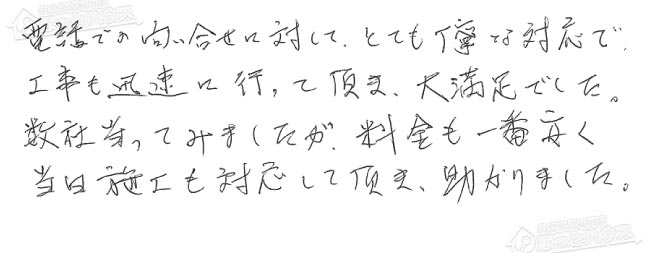 電話での問い合せに対して、とても丁寧な対応で、
工事も迅速に行って頂き、大満足でした。
数社当ってみましたが、料金も一番安く
当日施工も対応して頂き、助かりました。